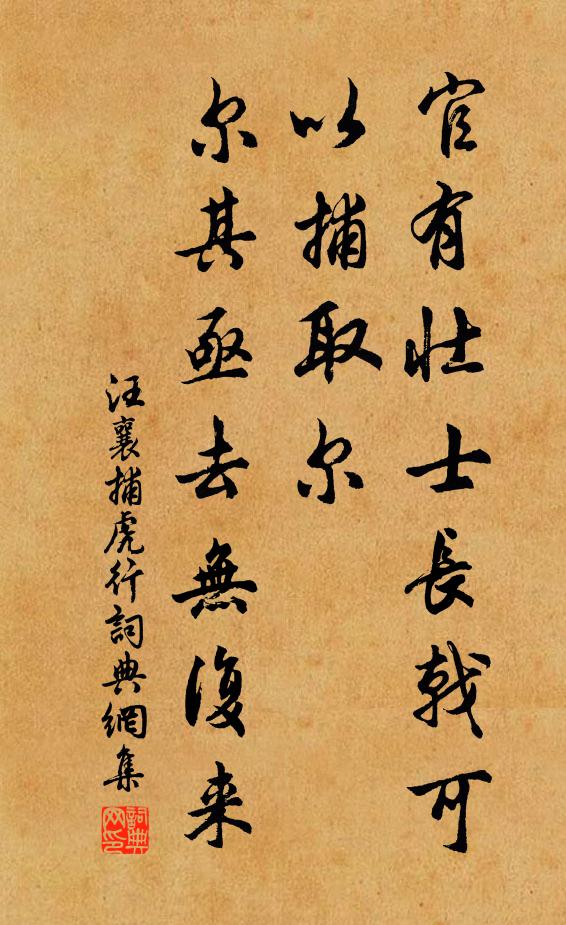 官有壮士長戟可
以捕取尔
尔其亟去無復来
汪襄捕虎行詞典網集
詞典网印